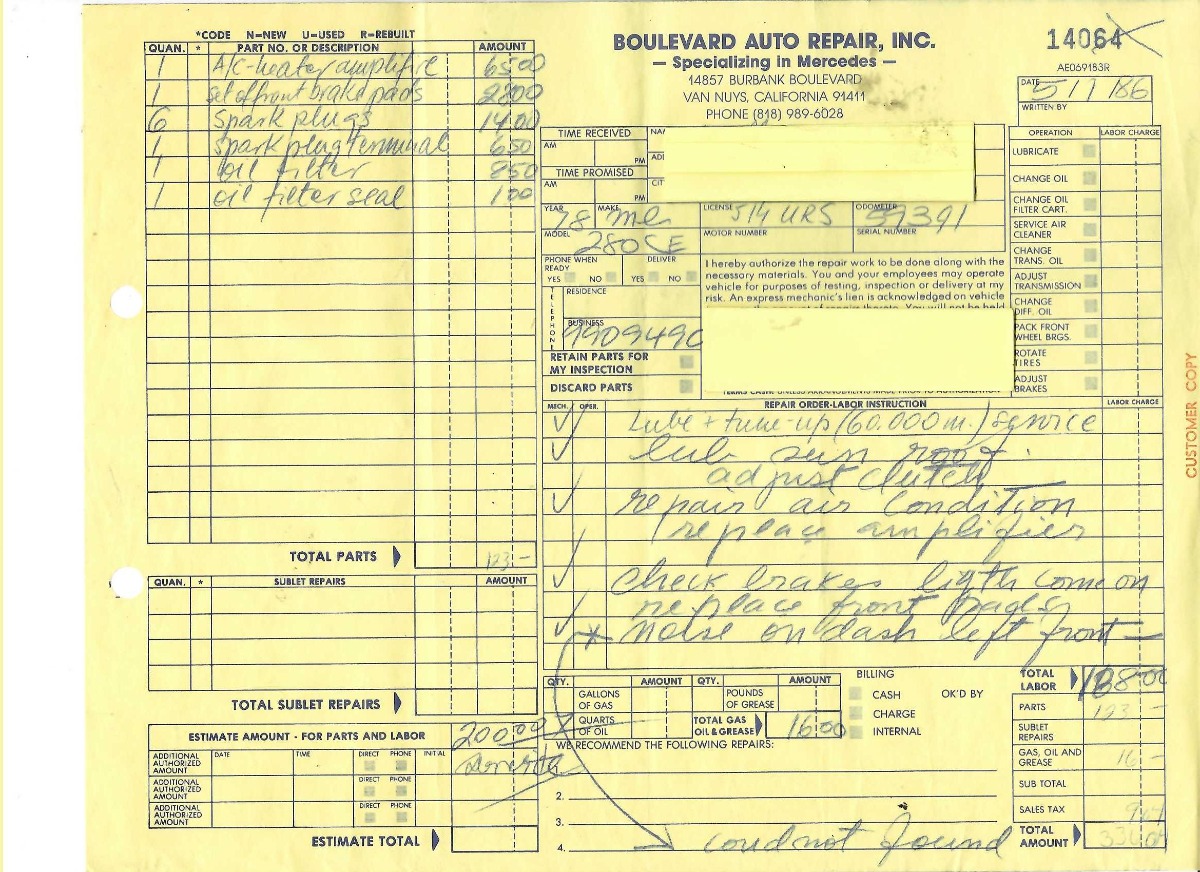 *CODE N=NEW U=USED R=REBUILT
QUAN. * PART NO. OR DESCRIPTION AMOUNT
1 A/C-heater amplifire 65 00
1 set of front brake pads 28 00
6 spark plugs 14.00
1 spark plug terminal 6 50
1 oil filter 8 50
1 oil filter seal 1 00
TOTAL PARTS 123.-
QUAN. * SUBLET REPAIRS AMOUNT
TOTAL SUBLET REPAIRS
ESTIMATE AMOUNT - FOR PARTS AND LABOR 200 00
ADDITIONAL AUTHORIZED AMOUNT DATE TIME DIRECT PHONE INITIAL
ADDITIONAL AUTHORIZED AMOUNT DIRECT PHONE
ADDITIONAL AUTHORIZED AMOUNT DIRECT PHONE
ESTIMATE TOTAL
BOULEVARD AUTO REPAIR, INC.
— Specializing in Mercedes —
14857 BURBANK BOULEVARD
VAN NUYS, CALIFORNIA 91411
PHONE (818) 989-6028
14064
AE069183R
DATE 5/1/86
WRITTEN BY
TIME RECEIVED
AM PM
TIME PROMISED
AM PM
YEAR 78 MAKE LICENSE 514 URS ODOMETER 59391
MODEL 280CE MOTOR NUMBER SERIAL NUMBER
PHONE WHEN READY DELIVER
YES NO YES NO
TELEPHONE
RESIDENCE
BUSINESS 9909490
RETAIN PARTS FOR MY INSPECTION
DISCARD PARTS
I hereby authorize the repair work to be done along with the
necessary materials. You and your employees may operate
vehicle for purposes of testing, inspection or delivery at my
risk. An express mechanic's lien is acknowledged on vehicle
OPERATION LABOR CHARGE
LUBRICATE
CHANGE OIL
CHANGE OIL FILTER CART.
SERVICE AIR CLEANER
CHANGE TRANS. OIL
ADJUST TRANSMISSION
CHANGE DIFF. OIL
PACK FRONT WHEEL BRGS.
ROTATE TIRES
ADJUST BRAKES
MECH. OPER. REPAIR ORDER-LABOR INSTRUCTION LABOR CHARGE
Lube + tune-up (60.000 m.) service
lub sun roof.
adjust clutch
repair air condition
replace amplifier
check brakes ligth come on
replace front pads
* noise on dash left front —
QTY. AMOUNT QTY. AMOUNT
GALLONS OF GAS POUNDS OF GREASE
QUARTS OF OIL TOTAL GAS OIL & GREASE 16 00
BILLING
CASH OK'D BY
CHARGE
INTERNAL
WE RECOMMEND THE FOLLOWING REPAIRS:
2.
3.
4. coud not found
TOTAL LABOR 188.00
PARTS 123 —
SUBLET REPAIRS
GAS, OIL AND GREASE 16 —
SUB TOTAL
SALES TAX
TOTAL AMOUNT
CUSTOMER COPY